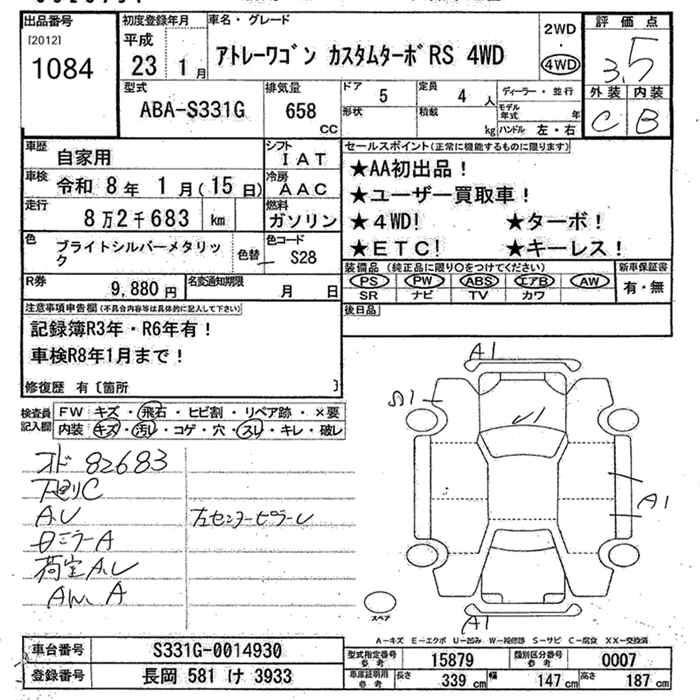 出品番号
[2012]
1084
初度登録年月
平成
23 1月
車名・グレード
アトレーワゴン カスタムターボRS 4WD
2WD
・
4WD
評価点
3.5
外装 内装
C B
型式
ABA-S331G
排気量
658
CC
ドア
5
形状
定員
4 人
積載
kg
ディーラー・並行
モデル年式 年
ハンドル 左・右
車歴
自家用
シフト
IAT
車検
令和 8年 1月(15日)
冷房
AAC
走行
8万2千683 km
燃料
ガソリン
色
ブライトシルバーメタリック
色替
色コード
S28
R券
9,880円
名変通知期限
月 日
セールスポイント(正常に機能するものに限ります)
★AA初出品!
★ユーザー買取車!
★4WD! ★ターボ!
★ETC! ★キーレス!
装備品 (純正品に限り○をつけてください)
PS PW ABS エアB AW
SR ナビ TV カワ
新車保証書
有・無
後日品
注意事項申告欄(不具合内容等は具体的に記入して下さい)
記録簿R3年・R6年有!
車検R8年1月まで!
修復歴 有〔箇所 〕
検査員
記入欄
FW キズ・飛石・ヒビ割・リペア跡・×要
内装 キズ・汚レ・コゲ・穴・スレ・キレ・破レ
オド 82683
下廻りC
A.U
ロミラーA
荷室A.U
AW A
左センターピラーU
A1
A1
U1
A1
A1
スペア
A-キズ E-エクボ U-凹み W-補修跡 S-サビ C-腐食 XX-交換済
車台番号
S331G-0014930
登録番号
長岡 581 け 3933
型式指定番号
参考
15879
類別区分番号
参考
0007
車庫証明用
参考
長さ
339 cm
幅
147 cm
高さ
187 cm